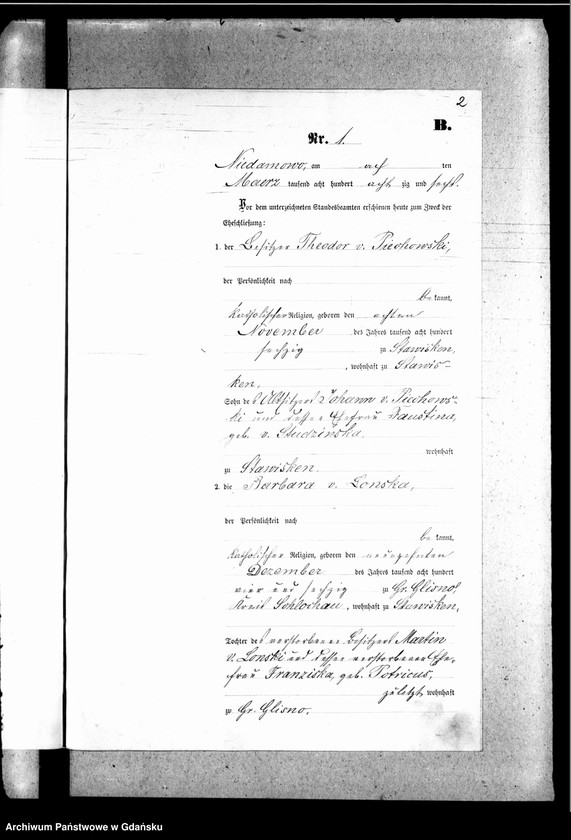 2
B.
Nr. 1.
Niedamowo, am acht ten
Maerz tausend acht hundert acht zig und sechs.
Vor dem unterzeichneten Standesbeamten erschienen heute zum Zweck der
Eheschließung:
1. der Besitzer Theodor v. Piechowski,
der Persönlichkeit nach
be kannt,
katholischer Religion, geboren den achten
November des Jahres tausend acht hundert
sechzig zu Stawisken,
, wohnhaft zu Stawis-
ken,
Sohn des Altsitzers Johann v. Piechows-
ki und dessen Ehefrau Faustina,
geb. v. Studzinska
wohnhaft
zu Stawisken
2. die Barbara v. Lonska,
der Persönlichkeit nach
be kannt,
katholischer Religion, geboren den neunzehnten
Dezember des Jahres tausend acht hundert
vier und sechzig zu Gr. Glisno,
Kreis Schlochau, wohnhaft zu Stawisken,
Tochter des verstorbenen Besitzers Martin
v. Lonski und dessen verstorbener Ehe-
frau Franziska, geb. Potricus,
zuletzt wohnhaft
zu Gr. Glisno.
Archiwum Państwowe w Gdańsku